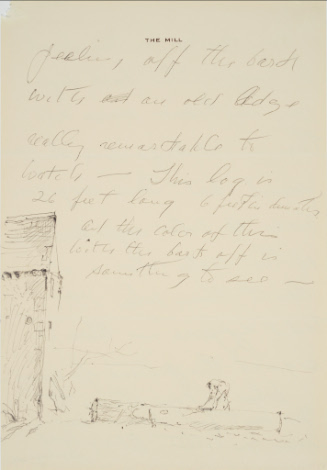 THE MILL
peeling off the bark
with an old adze
really remarkable to
watch — This log is
26 feet long 6 feet in diameter
and the color of this
with the bark off is
something to see —